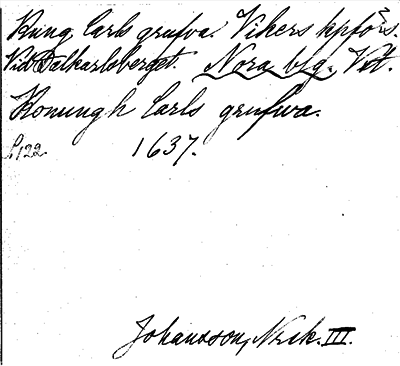 Kung Carls grufva. Vikers kpförs.
Vid Dalkarlsberget. Nora blg. Vstl.
Konungh Carls grufwa.
s. 122 1637.
Johansson, Noraskog. III.